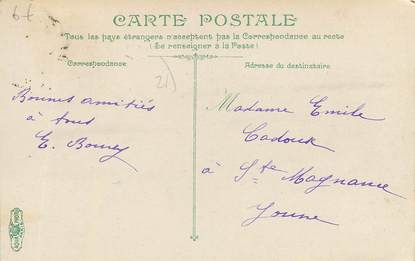 CARTE POSTALE
Tous les pays étrangers n'acceptent pas la Correspondance au recto
(Se renseigner à la Poste)
Correspondance
Adresse du destinataire
Bonnes amitiés
à tous
E.
Madame Emile
Cadoux
à Ste Magnance
Yonne